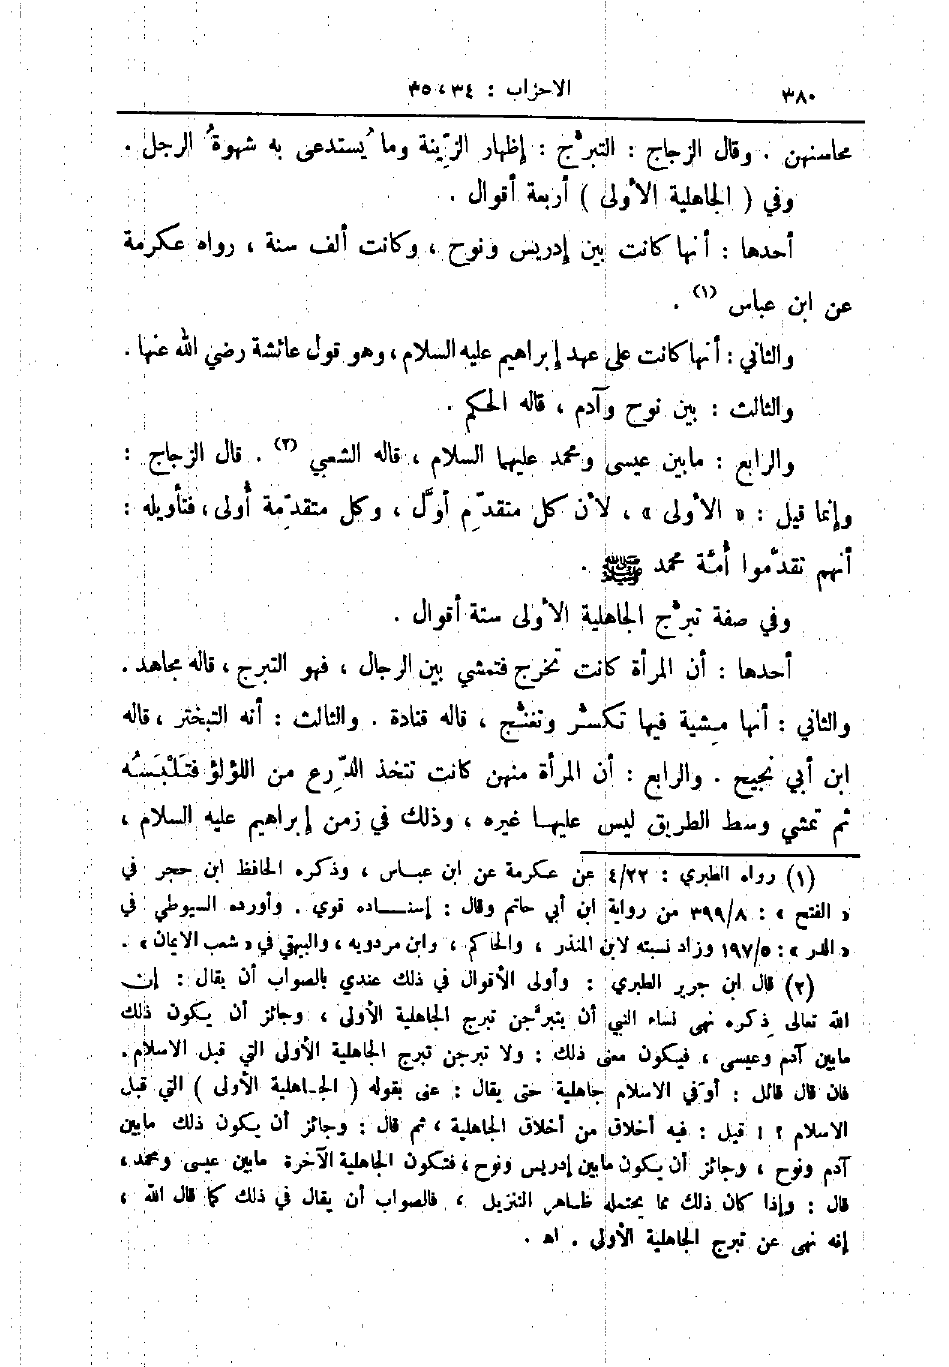 ٣٨٠ الاحزاب : ٣٤ ، ٣٥
محاسنهن . وقال الزجاج : التبرُّج : إظهار الزِّينة وما يُستدعى به شهوةُ الرجل .
وفي ( الجاهلية الأولى ) أربعة أقوال .
أحدها : أنها كانت بين إدريس ونوح ، وكانت ألف سنة ، رواه عكرمة
عن ابن عباس (١) .
والثاني : أنها كانت على عهد إبراهيم عليه السلام ، وهو قول عائشة رضي الله عنها .
والثالث : بين نوح وآدم ، قاله الحكم .
والرابع : مابين عيسى ومحمد عليهما السلام ، قاله الشعبي (٢) . قال الزجاج :
وإنما قيل : « الأولى » ، لأن كل متقدِّم أوَّل ، وكل متقدِّمة أُولى ، فتأويله :
أنهم تقدَّموا أُمَّة محمد ﷺ .
وفي صفة تبرُّج الجاهلية الأولى ستة أقوال .
أحدها : أن المرأة كانت تخرج فتمشي بين الرجال ، فهو التبرج ، قاله مجاهد .
والثاني : أنها مِشية فيها تكسُّر وتغنُّج ، قاله قتادة . والثالث : أنه التبختر ، قاله
ابن أبي نجيح . والرابع : أن المرأة منهن كانت تتخذ الدِّرع من اللؤلؤ فتَلْبَسُه
ثم تمشي وسط الطريق ليس عليها غيره ، وذلك في زمن إبراهيم عليه السلام ،
(١) رواه الطبري : ٤/٢٢ عن عكرمة عن ابن عباس ، وذكره الحافظ ابن حجر في
« الفتح » : ٣٩٩/٨ من رواية ابن أبي حاتم وقال : إسناده قوي . وأورده السيوطي في
« الدر » : ١٩٧/٥ وزاد نسبته لابن المنذر ، والحاكم ، وابن مردويه ، والبيهقي في « شعب الايمان » .
(٢) قال ابن جرير الطبري : وأولى الأقوال في ذلك عندي بالصواب أن يقال : إن
الله تعالى ذِكره نهى نساء النبي أن يتبرَّجن تبرج الجاهلية الأولى ، وجائز أن يكون ذلك
مابين آدم وعيسى ، فيكون معنى ذلك : ولا تبرجن تبرج الجاهلية الأولى التي قبل الاسلام .
فان قال قائل : أوَفي الاسلام جاهلية حتى يقال : عنى بقوله ( الجاهلية الأولى ) التي قبل
الاسلام ؟ ! قيل : فيه أخلاق من أخلاق الجاهلية ، ثم قال : وجائز أن يكون ذلك مابين
آدم ونوح ، وجائز أن يكون مابين إدريس ونوح ، فتكون الجاهلية الآخرة مابين عيسى ومحمد ،
قال : وإذا كان ذلك مما يحتمله ظاهر التنزيل ، فالصواب أن يقال في ذلك كما قال الله ،
إنه نهى عن تبرج الجاهلية الأولى . اه .